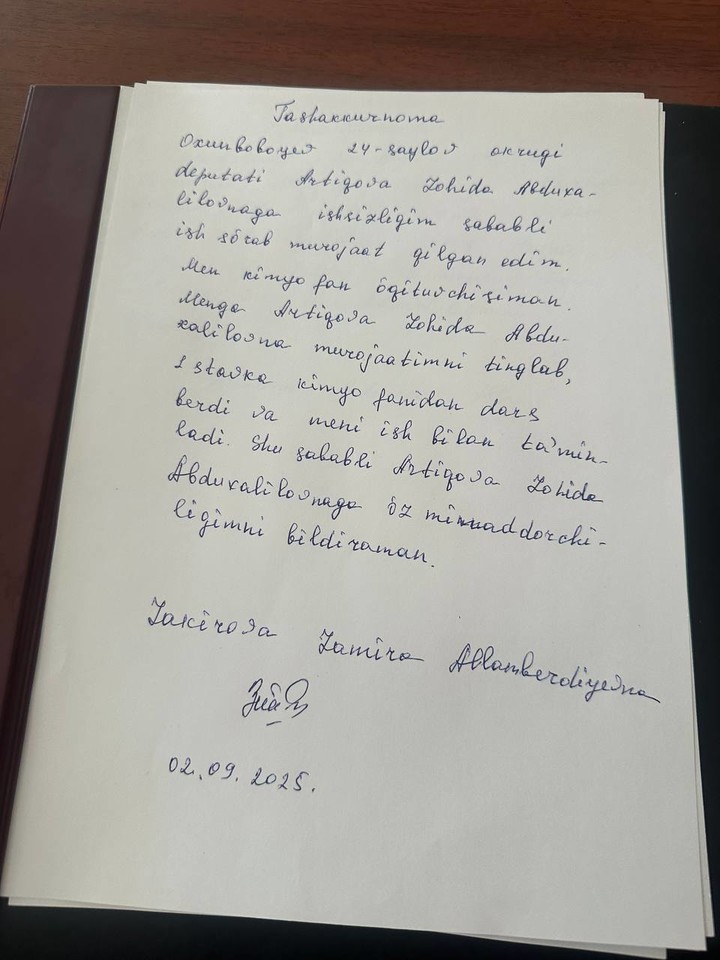 Tashakkurnoma
Oxunboboyev 24-saylov okrugi
deputati Artiqova Zohida Abduxa-
lilovnaga ishsizligim sababli
ish sôrab murojaat qilgan edim.
Men kimyo fan ôqituvchisiman.
Menga Artiqova Zohida Abdu-
xalilovna murojaatimni tinglab,
1 stavka kimyo fanidan dars
berdi va meni ish bilan ta'min-
ladi. Shu sababli Artiqova Zohida
Abduxalilovnaga ôz minnaddorchi-
ligimni bildiraman.
Zakirova Zamira Allamberdiyevna
02.09.2025.